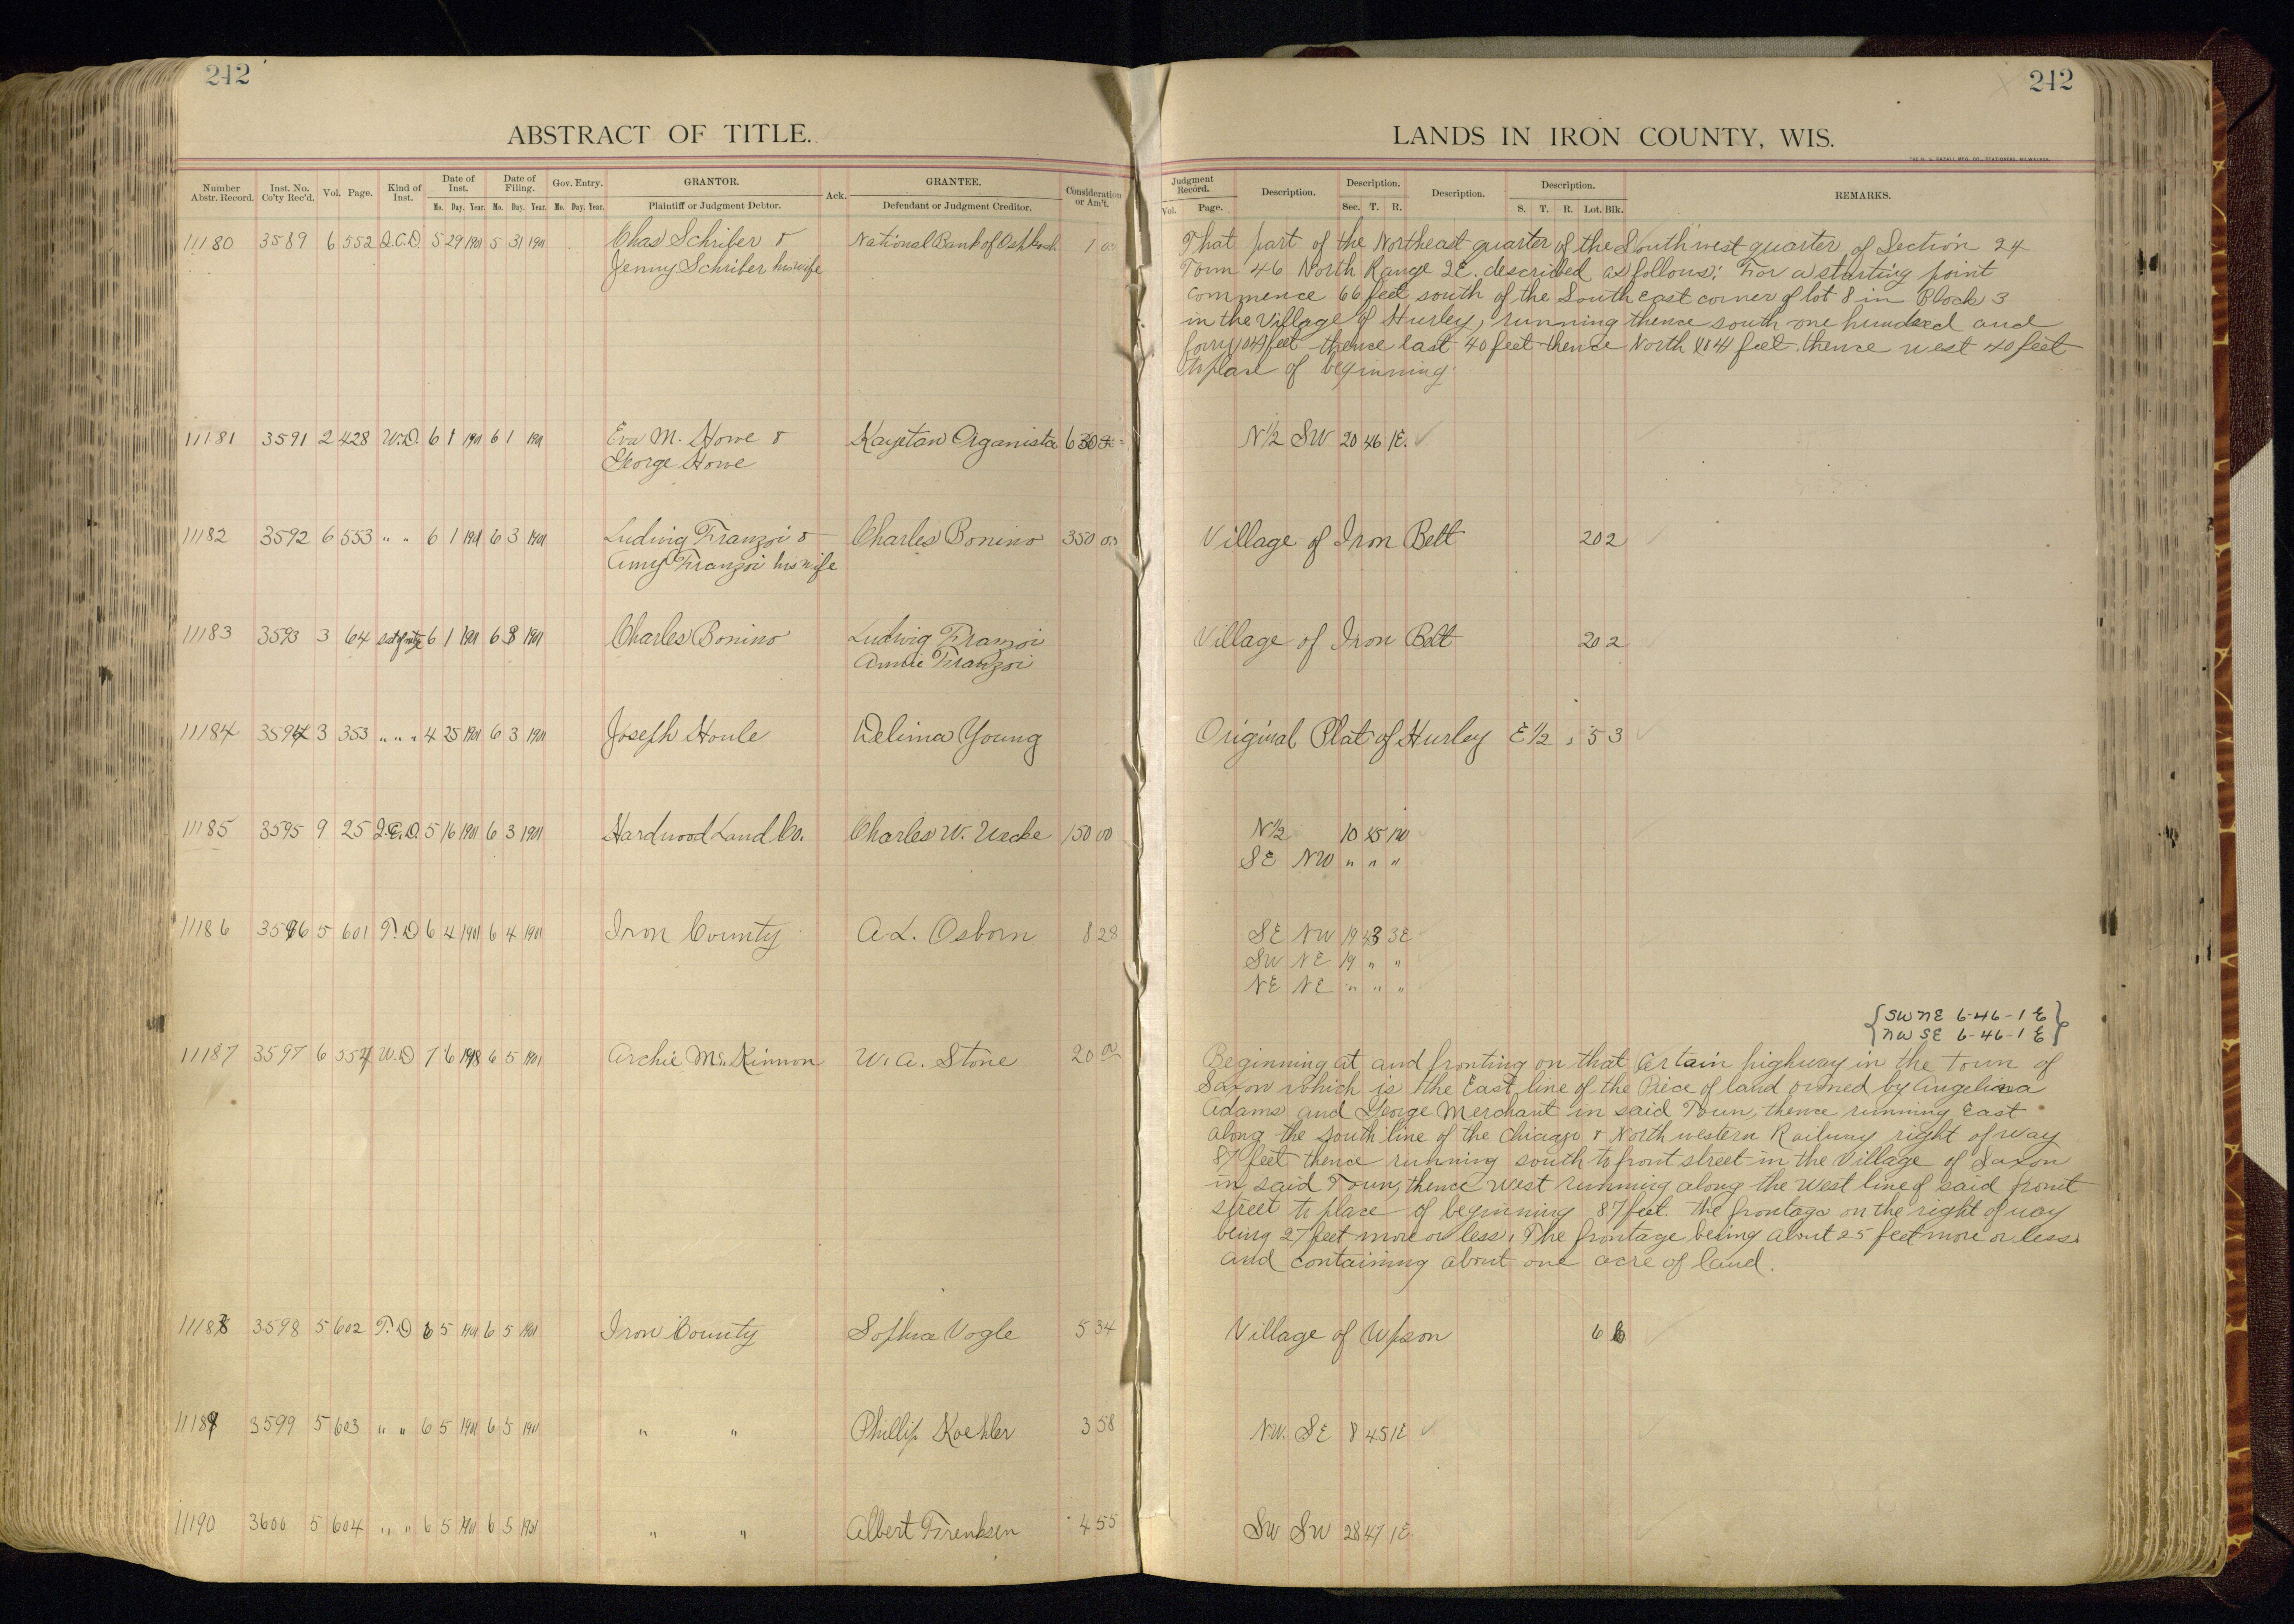 242
ABSTRACT OF TITLE.
Number Abstr. Record. Inst. No. Co'ty Rec'd. Vol. Page. Kind of Inst. Date of Inst. Mo. Day. Year. Date of Filing. Mo. Day. Year. Gov. Entry. Mo. Day. Year. GRANTOR. Plaintiff or Judgment Debtor. Ack. GRANTEE. Defendant or Judgment Creditor. Consideration or Am't.
11180 3589 6 552 Q.C.D. 5 29 1901 5 31 1901 Chas Schriber & National Bank of Oshkosh 1 00
Jenny Schriber his wife
11181 3591 2 428 W.D. 6 1 1901 6 1 1901 Eva M. Howe & Kajetan Organista 630 00
George Howe
11182 3592 6 553 " " 6 1 1901 6 3 1901 Ludwig Franzoi & Charles Bonino 350 00
Amy Franzoi his wife
11183 3593 3 64 6 1 1901 6 3 1901 Charles Bonino Ludwig Franzoi
Annie Franzoi
11184 3594 3 353 " " " 4 25 1901 6 3 1901 Joseph Houle Delima Young
11185 3595 9 25 Q.C.D. 5 16 1901 6 3 1901 Hardwood Land Co. Charles W. Uecke 150 00
11186 3596 5 601 T.D 6 4 1901 6 4 1901 Iron County A.L. Osborn 8 28
11187 3597 6 554 W.D 7 6 1898 6 5 1901 Archie McKinnon W.A. Stone 20 00
11188 3598 5 602 T.D 6 5 1901 6 5 1901 Iron County Sophia Vogle 5 34
11189 3599 5 603 " " 6 5 1901 6 5 1901 " " Phillip Koehler 3 58
11190 3600 5 604 " " 6 5 1901 6 5 1901 " " Albert Frenksen 4 55
242
LANDS IN IRON COUNTY, WIS.
THE H. G. RAZALL MFG. CO., STATIONERS, MILWAUKEE.
Judgment Record. Vol. Page. Description. Description. Sec. T. R. Description. Description. S. T. R. Lot. Blk. REMARKS.
That part of the Northeast quarter of the Southwest quarter of Section 24
Town 46 North Range 2E. described as follows: For a starting point
commence 66 feet south of the South east corner of lot 8 in Block 3
in the Village of Hurley, running thence south one hundred and
feet thence East 40 feet thence North feet. thence west 40 feet
to place of beginning.
N½ SW 20 46 1E.
Village of Iron Belt 20 2
Village of Iron Belt 20 2
Original Plat of Hurley E½ 5 3
N½ 10 45 1W
SE NW " " "
SE NW 19 43 3E
SW NE 19 " "
NE NE " " "
{SW NE 6-46-1E}
{NW SE 6-46-1E}
Beginning at and fronting on that certain highway in the Town of
Saxon which is the East line of the Piece of land owned by Angelina
Adams and George Merchant in said Town, thence running East
along the south line of the Chicago & Northwestern Railway right of way
87 feet thence running south to front street in the Village of Saxon
in said Town, thence West running along the west line of said front
street to place of beginning 87 feet. The frontage on the right of way
being 27 feet more or less, The frontage being about 25 feet more or less.
and containing about one acre of land.
Village of Upson 6 6
NW. SE 8 45 1E
SW SW 28 47 1E.